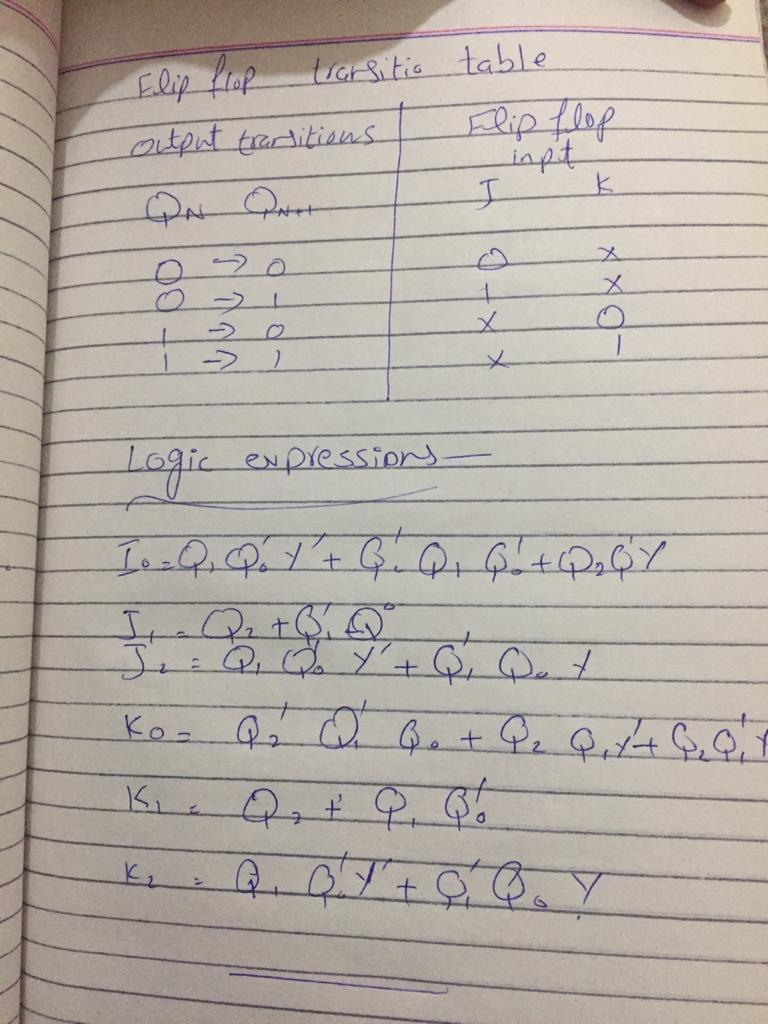 Flip flop transitio table
Output transitions Flip flop input
QN QN+1 J K
0 → 0 0 x
0 → 1 1 x
1 → 0 x 0
1 → 1 x 1
Logic expressions —
J0 = Q1 Q0' Y' + Q2' Q1 Q0' + Q2 Q' Y
J1 = Q2 + Q1' Q0
J2 = Q1 Q0' Y' + Q1' Q0 Y
K0 = Q2' Q1' Q0 + Q2 Q1 Y' + Q2 Q1' Y
K1 = Q2 + Q1 Q0'
K2 = Q1 Q0' Y' + Q1' Q0 Y